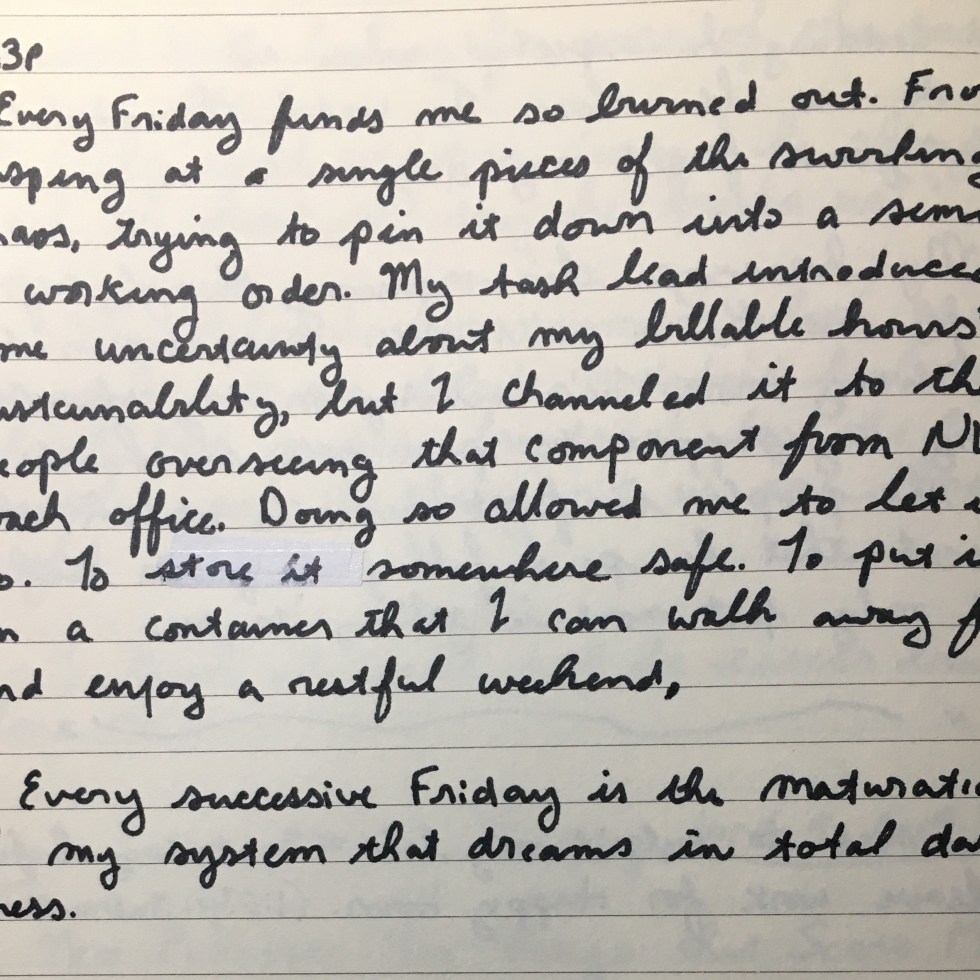 3P
Every Friday finds me so burned out. Fro
sping at a single pieces of the swirling
haos, trying to pin it down into a sem
working order. My task lead introduced
me uncertainty about my billable hours'
ustainability, but I channeled it to the
eople overseeing that component from N
ach office. Doing so allowed me to let
o. To store it somewhere safe. To put i
n a container that I can walk away f
nd enjoy a restful weekend,
Every successive Friday is the maturatio
my system that dreams in total da
ness.